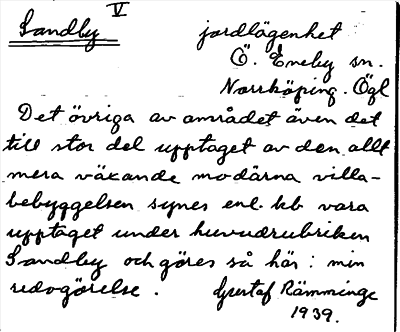 Sandby V jordlägenhet
Ö. Eneby sn.
Norrköping. Ögl
Det övriga av området även det
till stor del upptaget av den allt
mera växande modärna villa-
bebyggelsen synes enl. kb vara
upptaget under huvudrubriken
Sandby och göres så här: min
redogörelse. Gustaf Rämminge
1939.